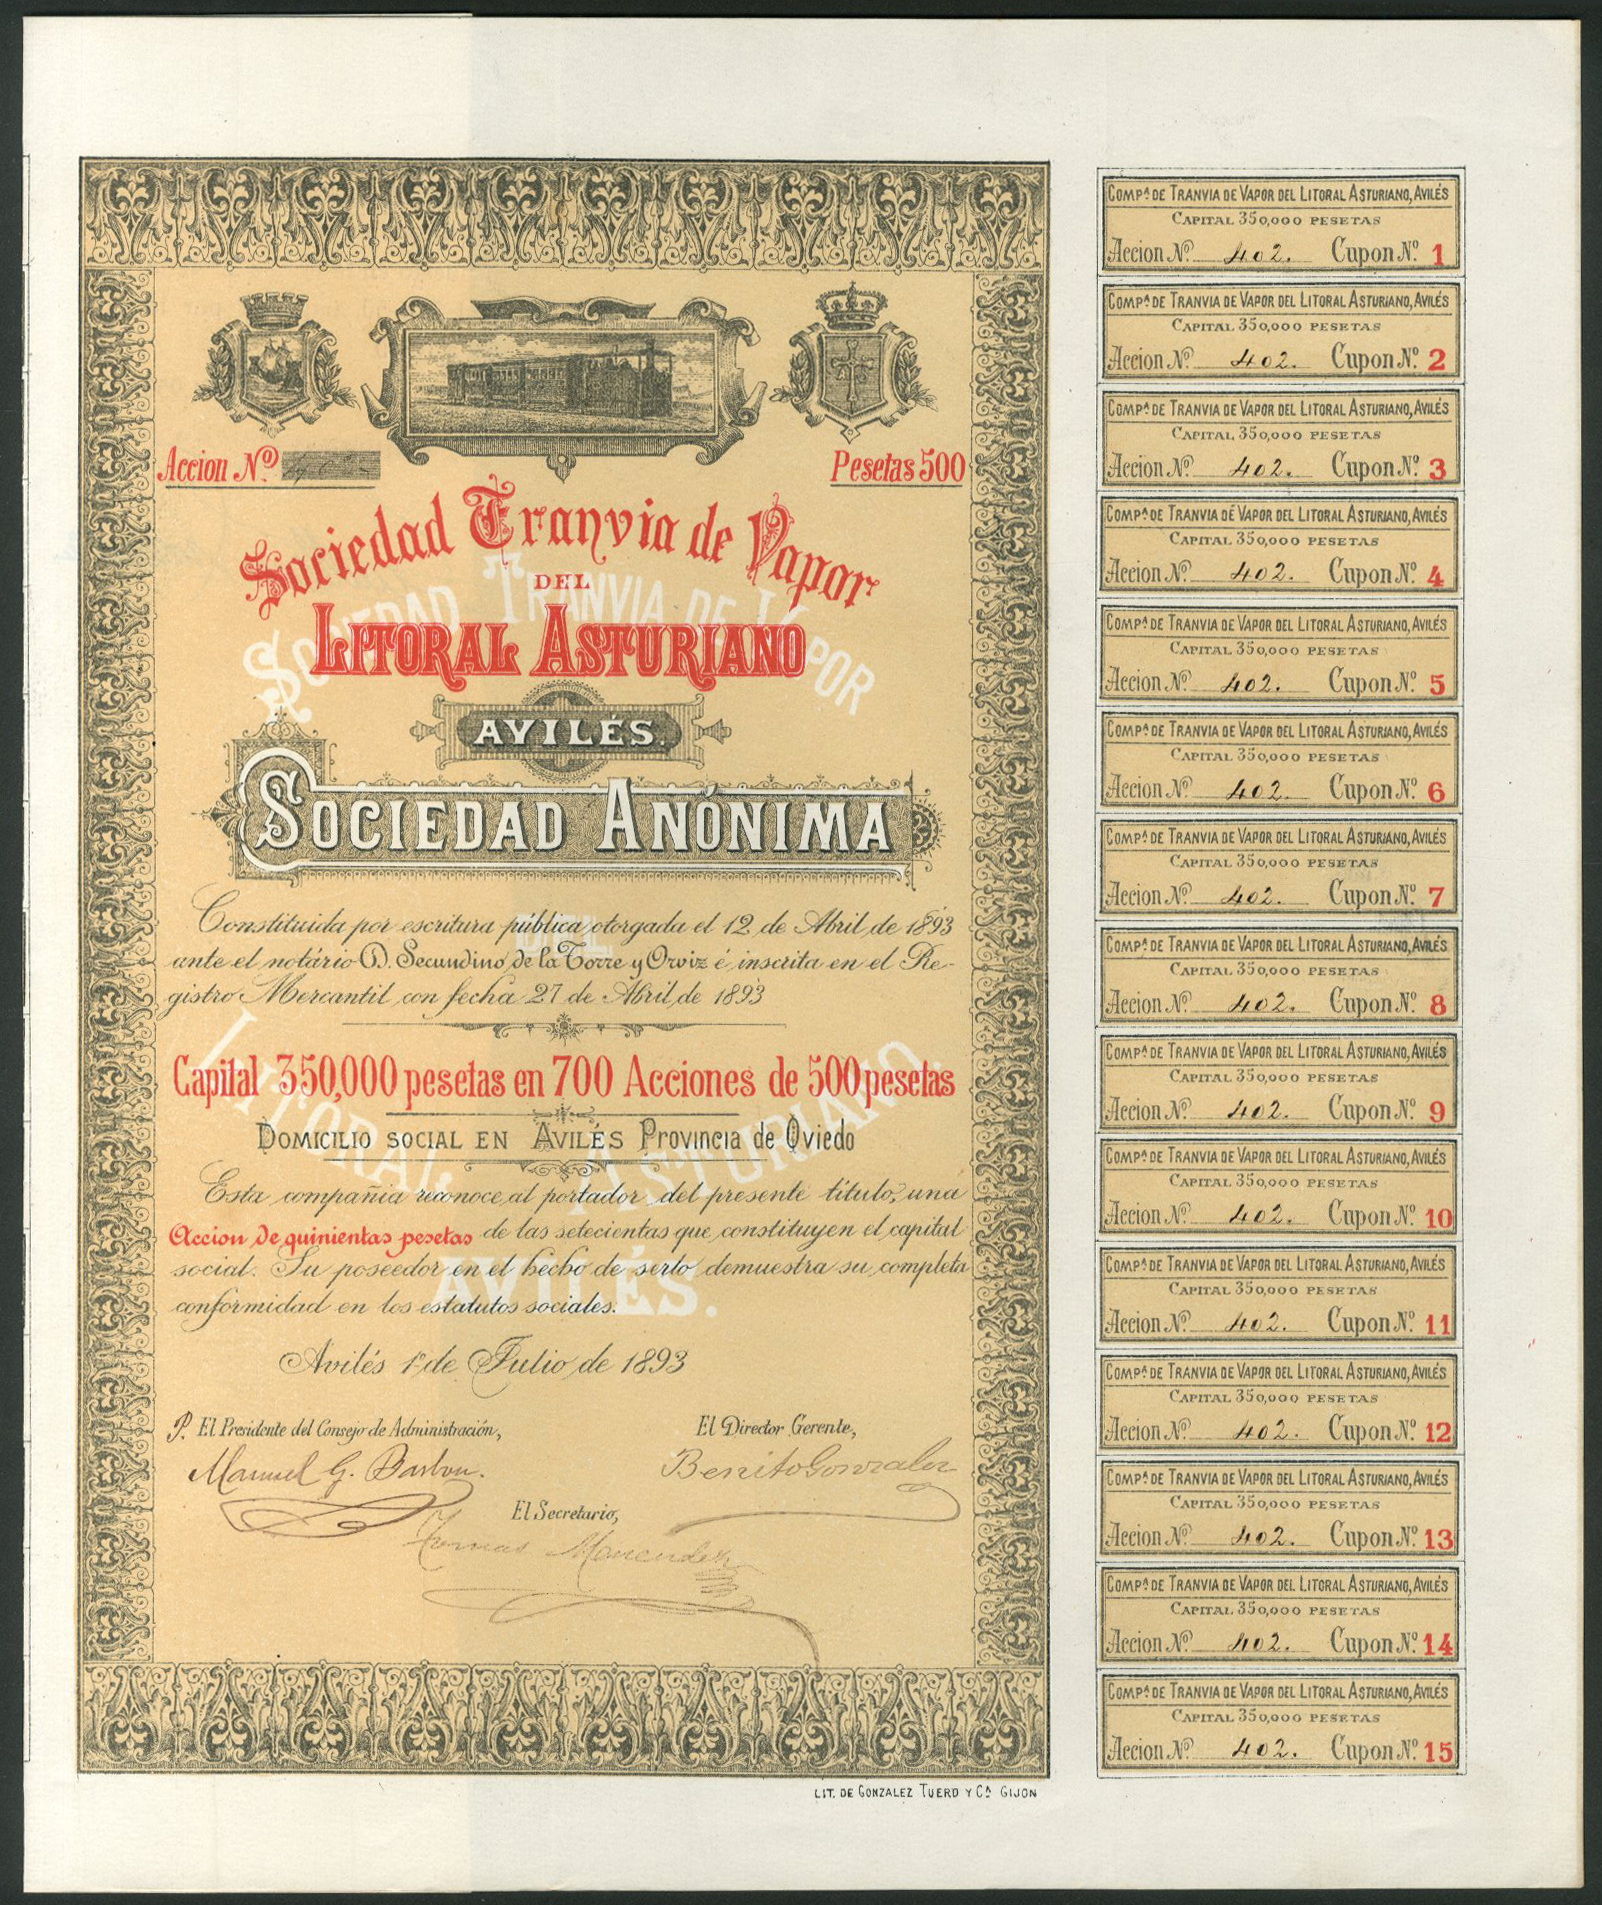 Accion Nº 402
Pesetas 500
Sociedad Tranvia de Vapor
DEL
LITORAL ASTURIANO
AVILÉS.
SOCIEDAD ANÓNIMA
Constituida por escritura pública otorgada el 12 de Abril de 1893
ante el notário D. Secundino de la Torre y Orviz é inscrita en el Re-
gistro Mercantil con fecha 27 de Abril de 1893
Capital 350,000 pesetas en 700 Acciones de 500 pesetas
DOMICILIO SOCIAL EN AVILÉS Provincia de Oviedo
Esta compañia reconoce al portador del presente título, una
Accion de quinientas pesetas de las setecientas que constituyen el capital
social. Su poseedor en el hecho de serlo demuestra su completa
conformidad en los estatutos sociales.
Avilés 1º de Julio de 1893
P. El Presidente del Consejo de Administración,
El Director Gerente,
Manuel G. Barbon.
Benito Gonzalez
El Secretario,
Tomas Menendez
SOCIEDAD TRANVIA DE VAPOR
DEL
LITORAL ASTURIANO.
AVILÉS.
LIT. DE GONZALEZ TUERO Y Cª GIJON
COMPª DE TRANVIA DE VAPOR DEL LITORAL ASTURIANO, AVILÉS
CAPITAL 350,000 PESETAS
Accion Nº 402. Cupon Nº 1
COMPª DE TRANVIA DE VAPOR DEL LITORAL ASTURIANO, AVILÉS
CAPITAL 350,000 PESETAS
Accion Nº 402. Cupon Nº 2
COMPª DE TRANVIA DE VAPOR DEL LITORAL ASTURIANO, AVILÉS
CAPITAL 350,000 PESETAS
Accion Nº 402. Cupon Nº 3
COMPª DE TRANVIA DE VAPOR DEL LITORAL ASTURIANO, AVILÉS
CAPITAL 350,000 PESETAS
Accion Nº 402. Cupon Nº 4
COMPª DE TRANVIA DE VAPOR DEL LITORAL ASTURIANO, AVILÉS
CAPITAL 350,000 PESETAS
Accion Nº 402. Cupon Nº 5
COMPª DE TRANVIA DE VAPOR DEL LITORAL ASTURIANO, AVILÉS
CAPITAL 350,000 PESETAS
Accion Nº 402. Cupon Nº 6
COMPª DE TRANVIA DE VAPOR DEL LITORAL ASTURIANO, AVILÉS
CAPITAL 350,000 PESETAS
Accion Nº 402. Cupon Nº 7
COMPª DE TRANVIA DE VAPOR DEL LITORAL ASTURIANO, AVILÉS
CAPITAL 350,000 PESETAS
Accion Nº 402. Cupon Nº 8
COMPª DE TRANVIA DE VAPOR DEL LITORAL ASTURIANO, AVILÉS
CAPITAL 350,000 PESETAS
Accion Nº 402. Cupon Nº 9
COMPª DE TRANVIA DE VAPOR DEL LITORAL ASTURIANO, AVILÉS
CAPITAL 350,000 PESETAS
Accion Nº 402. Cupon Nº 10
COMPª DE TRANVIA DE VAPOR DEL LITORAL ASTURIANO, AVILÉS
CAPITAL 350,000 PESETAS
Accion Nº 402. Cupon Nº 11
COMPª DE TRANVIA DE VAPOR DEL LITORAL ASTURIANO, AVILÉS
CAPITAL 350,000 PESETAS
Accion Nº 402. Cupon Nº 12
COMPª DE TRANVIA DE VAPOR DEL LITORAL ASTURIANO, AVILÉS
CAPITAL 350,000 PESETAS
Accion Nº 402. Cupon Nº 13
COMPª DE TRANVIA DE VAPOR DEL LITORAL ASTURIANO, AVILÉS
CAPITAL 350,000 PESETAS
Accion Nº 402. Cupon Nº 14
COMPª DE TRANVIA DE VAPOR DEL LITORAL ASTURIANO, AVILÉS
CAPITAL 350,000 PESETAS
Accion Nº 402. Cupon Nº 15